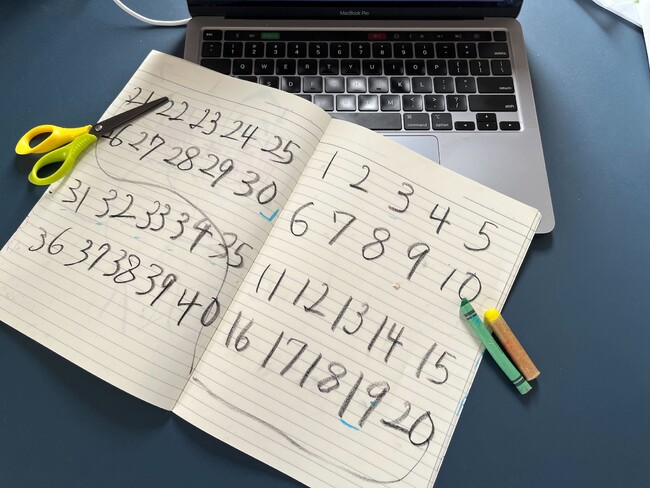 MacBook Pro
21 22 23 24 25
6 27 28 29 30
31 32 33 34 35
36 37 38 39 40
1 2 3 4 5
6 7 8 9 10
11 12 13 14 15
16 17 18 19 20